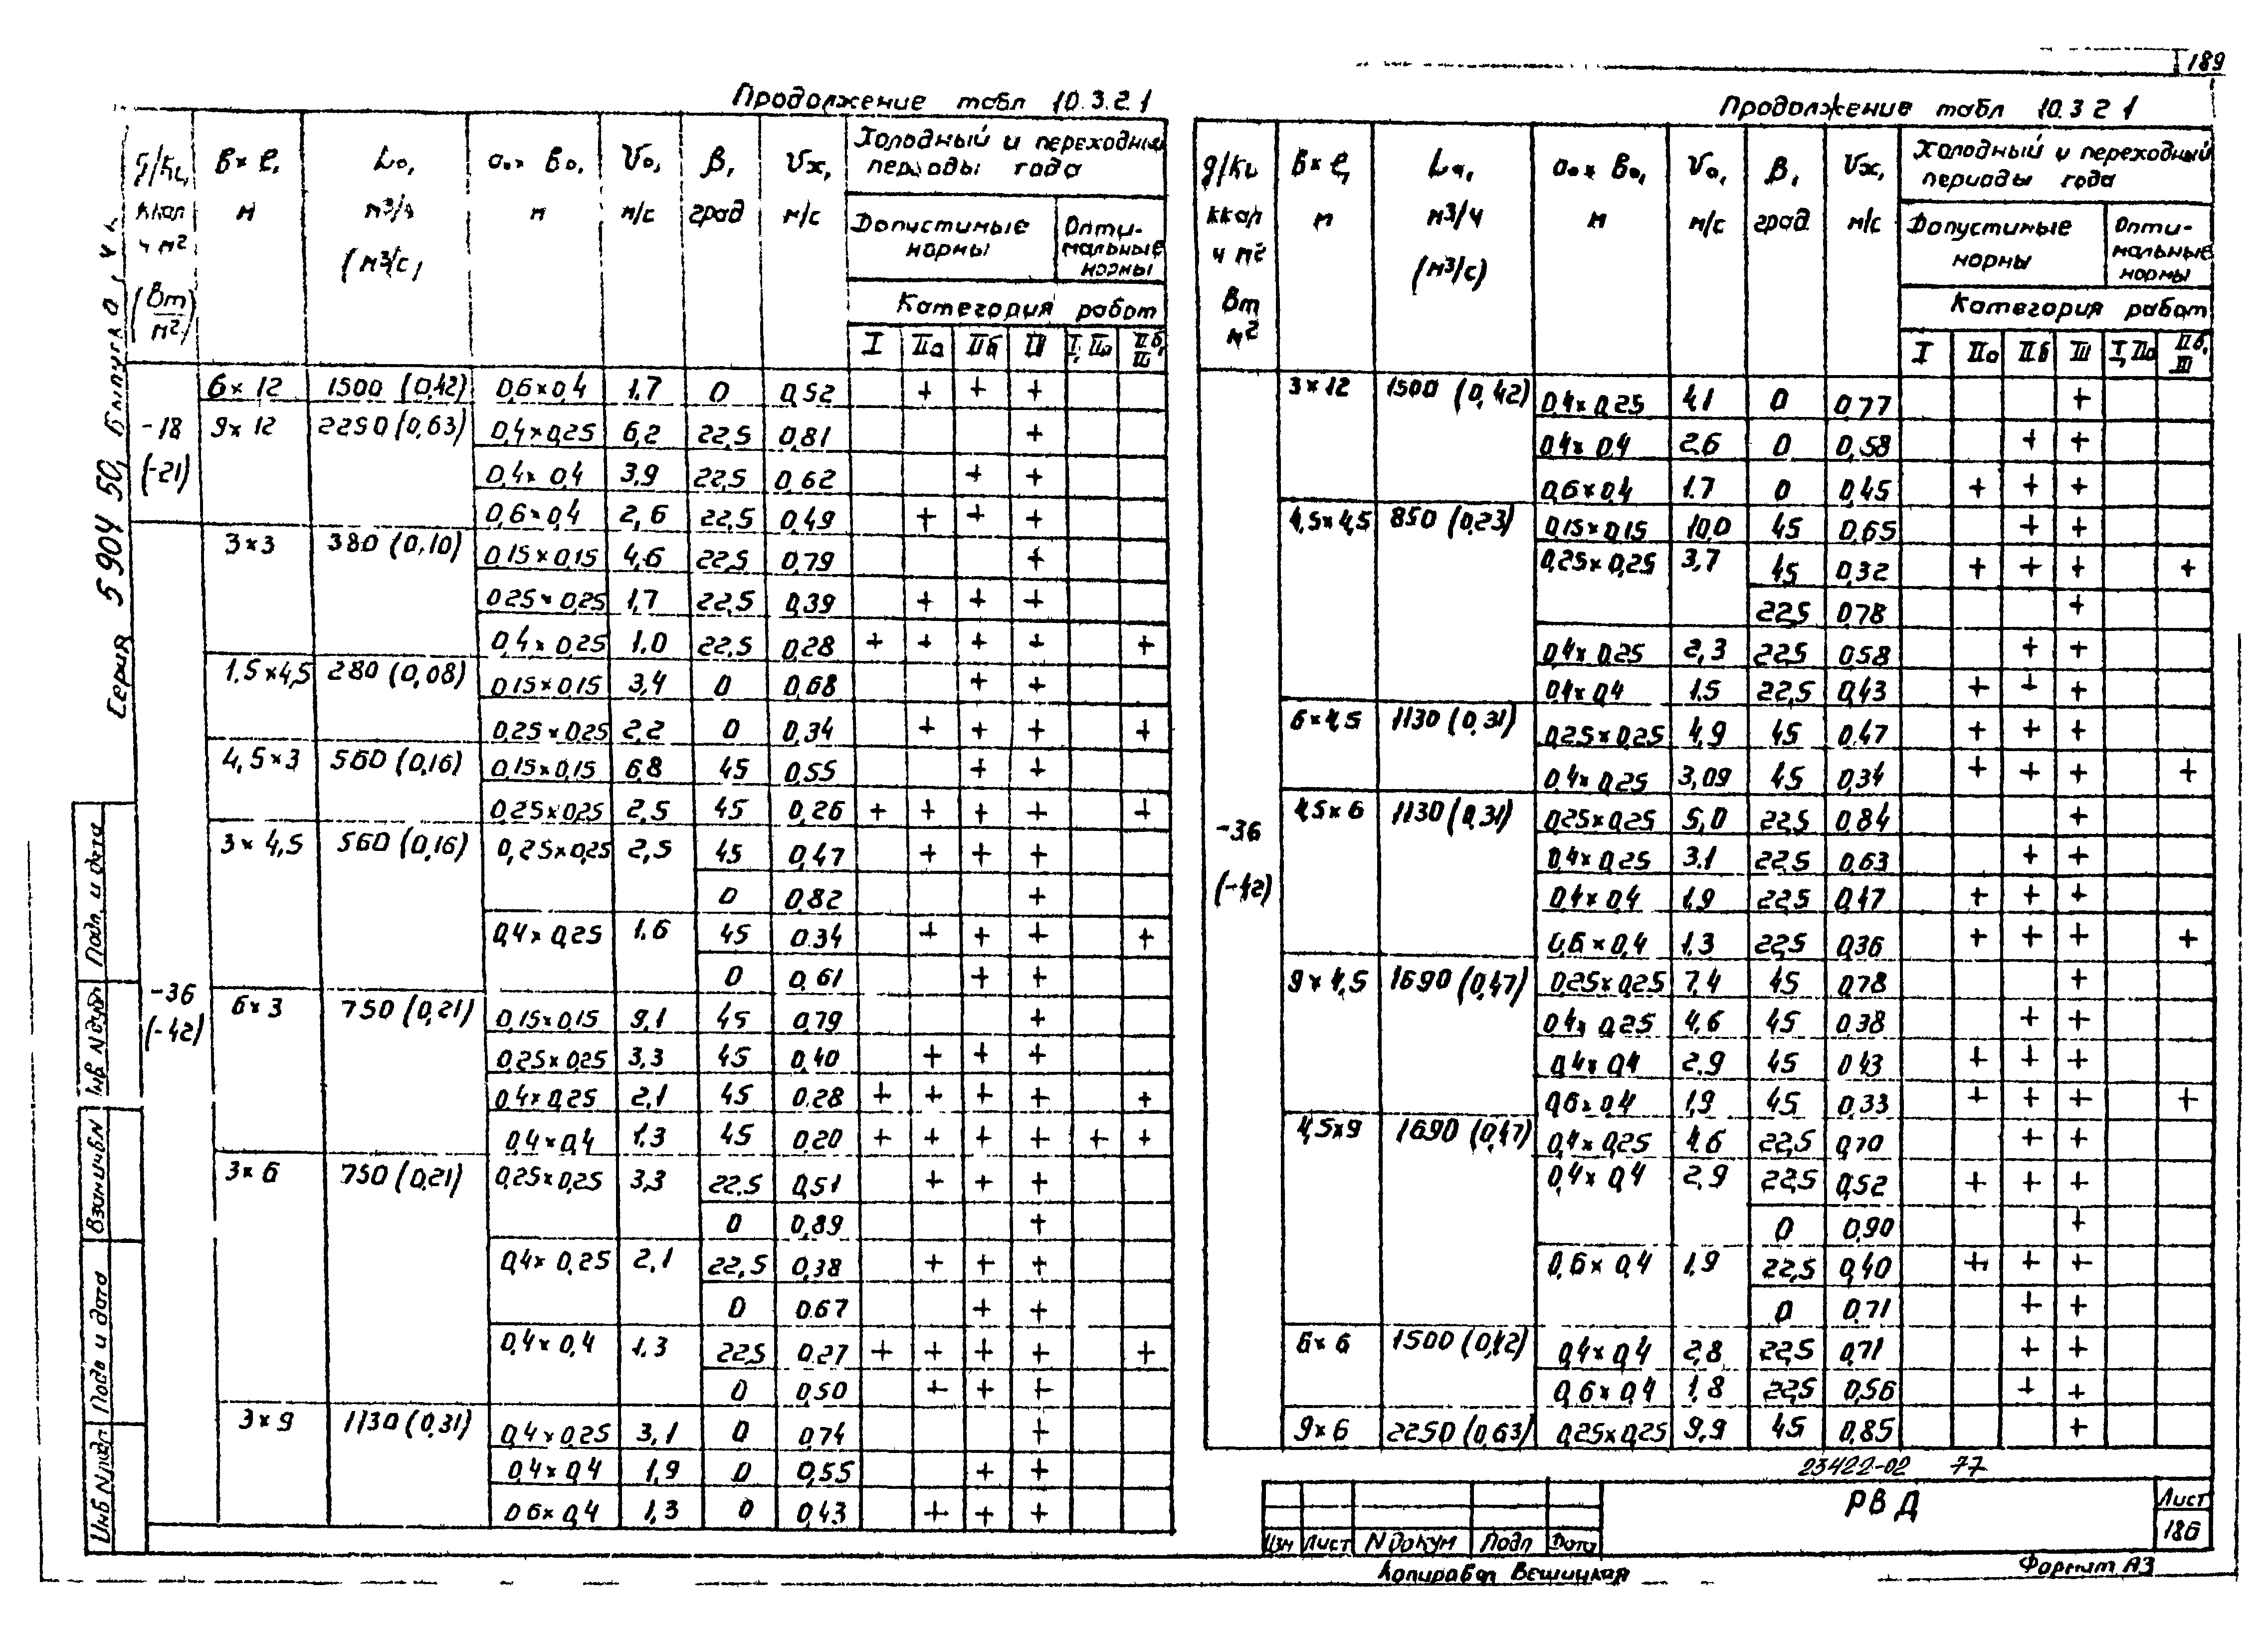 189
Продолжение табл 10.3.2.1
q/kц, ккал ч м² (Вт м²) | в × l, м | Lо, м³/ч (м³/с) | ао × во, м | Vо, м/с | β, град | Vх, м/с | Холодный и переходный периоды года
Допустимые нормы | Оптимальные нормы
Категория работ
I | IIа | IIб | III | I, IIа | IIб, III
-18 (-21)
6 × 12 1500 (0,42) 0,6×0,4 1,7 0 0,52 + + +
9 × 12 2250 (0,63) 0,4×0,25 6,2 22,5 0,81 +
0,4×0,4 3,9 22,5 0,62 + +
0,6×0,4 2,6 22,5 0,49 + + +
-36 (-42)
3×3 380 (0,10) 0,15×0,15 4,6 22,5 0,79 +
0,25×0,25 1,7 22,5 0,39 + + +
0,4×0,25 1.0 22,5 0,28 + + + + +
1,5×4,5 280 (0,08) 0,15×0,15 3,4 0 0,68 + +
0,25×0,25 2,2 0 0,34 + + + +
4,5×3 560 (0,16) 0,15×0,15 6,8 45 0,55 + +
0,25×0,25 2,5 45 0,26 + + + + +
3×4,5 560 (0,16) 0,25×0,25 2,5 45 0,47 + + +
0 0,82 +
0,4×0,25 1.6 45 0.34 + + + +
0 0,61 + +
6×3 750 (0,21) 0,15×0,15 9,1 45 0,79 +
0,25×0,25 3,3 45 0,40 + + +
0,4×0,25 2,1 45 0.28 + + + + +
0,4×0,4 1.3 45 0.20 + + + + + +
3×6 750 (0,21) 0,25×0,25 3,3 22,5 0,51 + + +
0 0,89 +
0,4×0,25 2,1 22,5 0,38 + + +
0 0.67 + +
0,4×0,4 1.3 22,5 0.27 + + + + +
0 0,50 + + +
3×9 1130 (0,31) 0,4×0,25 3,1 0 0,74 +
0,4×0,4 1,9 0 0,55 + +
0,6×0,4 1,3 0 0,43 + + +
Продолжение табл 10.3 2 1
q/kц ккал ч м² Вт м² | в × l, м | Lо, м³/ч (м³/с) | ао × во, м | Vо, м/с | β, град | Vх, м/с | Холодный и переходный периоды года
Допустимые нормы | Оптимальные нормы
Категория работ
I | IIа | IIб | III | I, IIа | IIб, III
-36 (-42)
3×12 1500 (0,42) 0,4×0,25 4,1 0 0,77 +
0,4×0,4 2,6 0 0,58 + +
0,6×0,4 1.7 0 0,45 + + +
4,5×4,5 850 (0,23) 0,15×0,15 10,0 45 0,65 + +
0,25×0,25 3,7 45 0,32 + + + +
22,5 0,78 +
0,4×0,25 2,3 22,5 0,58 + +
0,4×0,4 1.5 22,5 0,43 + + +
6×4,5 1130 (0,31) 0,25×0,25 4,9 45 0,47 + + +
0,4×0,25 3,09 45 0,34 + + + +
4,5×6 1130 (0,31) 0,25×0,25 5,0 22,5 0,84 +
0,4×0,25 3.1 22,5 0,63 + +
0,4×0,4 1,9 22,5 0,47 + + +
0,6×0,4 1,3 22,5 0,36 + + + +
9×4,5 1690 (0,47) 0,25×0,25 7,4 45 0,78 +
0,4×0,25 4,6 45 0,38 + +
0,4×0,4 2,9 45 0,43 + + +
0,6×0,4 1,9 45 0,33 + + + +
4,5×9 1690 (0,47) 0,4×0,25 4,6 22,5 0,70 + +
0,4×0,4 2,9 22,5 0,52 + + +
0 0,90 +
0,6×0,4 1,9 22,5 0,40 + + +
0 0,71 + +
6×6 1500 (0,42) 0,4×0,4 2,8 22,5 0,71 + +
0,6×0,4 1,8 22,5 0,56 + +
9×6 2250 (0,63) 0,25×0,25 9,9 45 0,85 +
23422-02 77
РВД
Лист
186
Изм Лист N докум Подп Дата
Копировал Вешицкая
Формат А3
Серия 5 904 50, Выпуск 0, ч 1.
Подп. и дата
Инв N дубл
Взам инв N
Подп и дата
Инв N подл